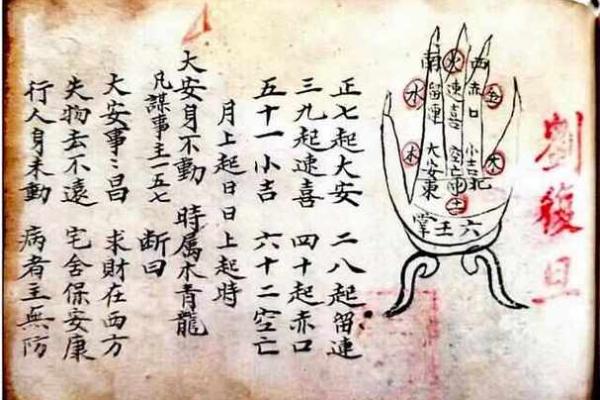 劉復旦
南
火
西
水
留連
速喜
赤口
金
木
大安
東
空亡
中
土
小吉
北
水
六壬掌
正七起大安 二八起留連
三九起速喜 四十起赤口
五十一小吉 六十二空亡
月上起日日上起時
大安身不動 時屬木青龍
凡謀事主一五七 斷曰
大安事々昌 求財在西方
失物去不遠 宅舍保安康
行人身未動 病者主無防